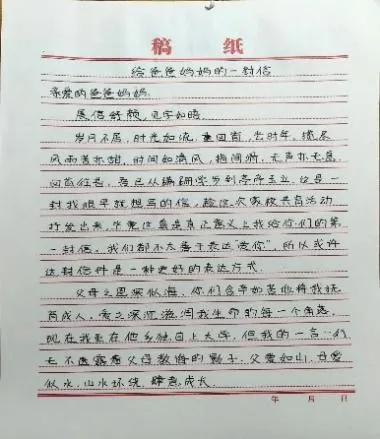 稿 纸
给爸爸妈妈的一封信
亲爱的爸爸妈妈
展信舒颜,见字如晤
岁月不居,时光如流,蓦回首,
风雨甚亦甜,时间如清风,指间滑,无声亦无息,
回首往昔,吾已从蹒跚学步到亭亭玉立,这是一
封我很早就想写的信,趁这次家校共育活动
打发出来,毕竟这算是真正意义上我给你们的第
一封信。我们都不太善于表达“爱你”,所以或许
这封信件是一种更好的表达方式
父母之恩深似海,你们含辛茹苦地将我抚
育成人,爱之深沉浸润我生命的每一个角落,
现在我虽在他乡独自上大学,但我的一言一行
无不透露着父母教诲的影子,父爱如山,母爱
似水,山水环绕,肆意成长
年 月 日